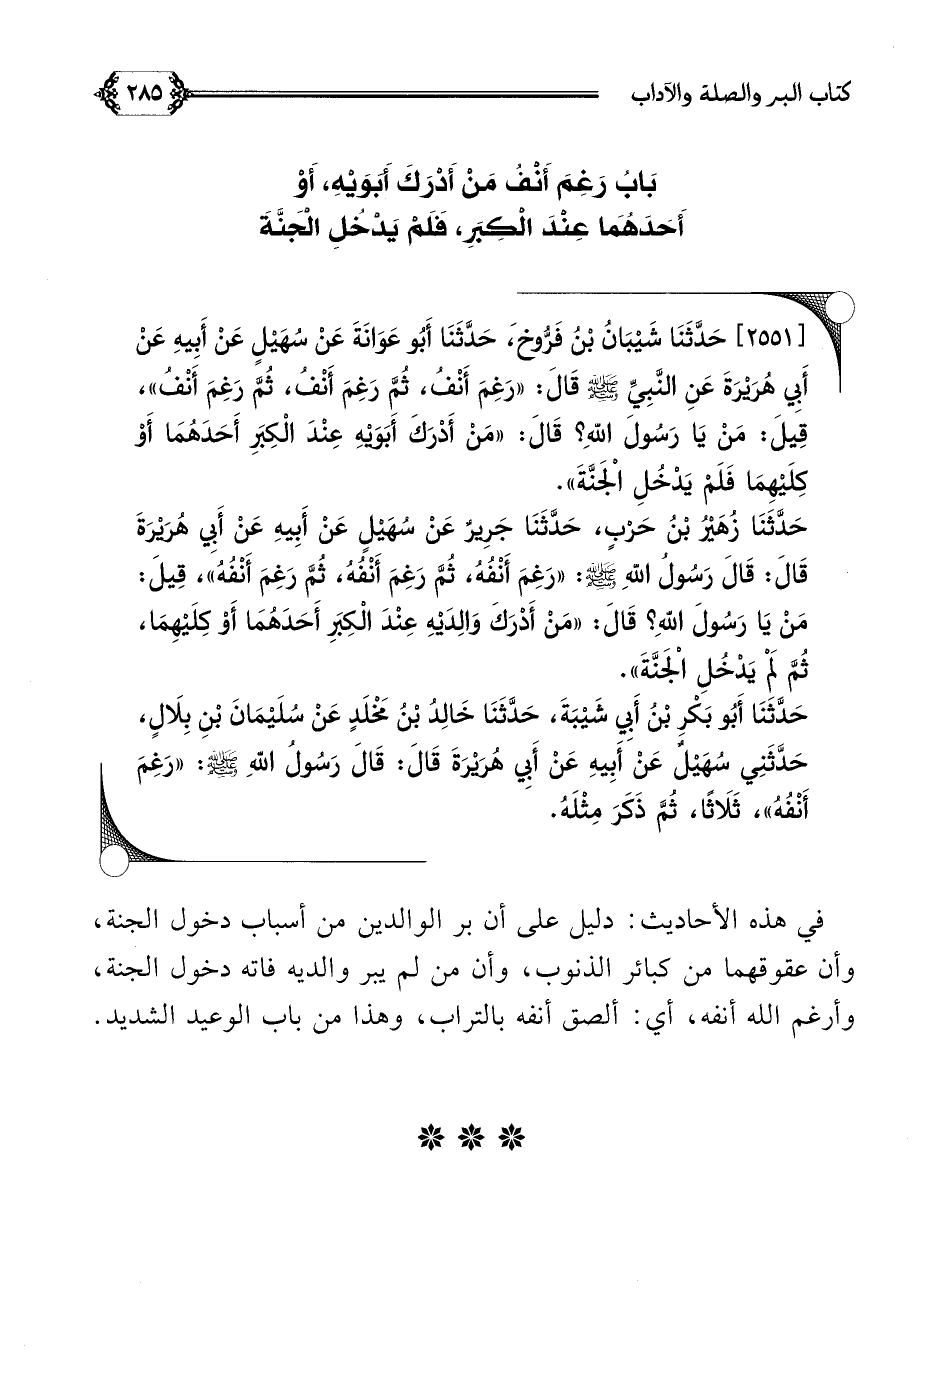 كتاب البر والصلة والآداب ٢٨٥
بَابُ رَغِمَ أَنْفُ مَنْ أَدْرَكَ أَبَوَيْهِ، أَوْ
أَحَدَهُمَا عِنْدَ الْكِبَرِ، فَلَمْ يَدْخُلِ الْجَنَّةَ
[٢٥٥١] حَدَّثَنَا شَيْبَانُ بْنُ فَرُّوخَ، حَدَّثَنَا أَبُو عَوَانَةَ عَنْ سُهَيْلٍ عَنْ أَبِيهِ عَنْ
أَبِي هُرَيْرَةَ عَنِ النَّبِيِّ ﷺ قَالَ: «رَغِمَ أَنْفُ، ثُمَّ رَغِمَ أَنْفُ، ثُمَّ رَغِمَ أَنْفُ»،
قِيلَ: مَنْ يَا رَسُولَ اللهِ؟ قَالَ: «مَنْ أَدْرَكَ أَبَوَيْهِ عِنْدَ الْكِبَرِ أَحَدَهُمَا أَوْ
كِلَيْهِمَا فَلَمْ يَدْخُلِ الْجَنَّةَ».
حَدَّثَنَا زُهَيْرُ بْنُ حَرْبٍ، حَدَّثَنَا جَرِيرٌ عَنْ سُهَيْلٍ عَنْ أَبِيهِ عَنْ أَبِي هُرَيْرَةَ
قَالَ: قَالَ رَسُولُ اللهِ ﷺ: «رَغِمَ أَنْفُهُ، ثُمَّ رَغِمَ أَنْفُهُ، ثُمَّ رَغِمَ أَنْفُهُ»، قِيلَ:
مَنْ يَا رَسُولَ اللهِ؟ قَالَ: «مَنْ أَدْرَكَ وَالِدَيْهِ عِنْدَ الْكِبَرِ أَحَدَهُمَا أَوْ كِلَيْهِمَا،
ثُمَّ لَمْ يَدْخُلِ الْجَنَّةَ».
حَدَّثَنَا أَبُو بَكْرِ بْنُ أَبِي شَيْبَةَ، حَدَّثَنَا خَالِدُ بْنُ مَخْلَدٍ عَنْ سُلَيْمَانَ بْنِ بِلَالٍ،
حَدَّثَنِي سُهَيْلٌ عَنْ أَبِيهِ عَنْ أَبِي هُرَيْرَةَ قَالَ: قَالَ رَسُولُ اللهِ ﷺ: «رَغِمَ
أَنْفُهُ»، ثَلَاثًا، ثُمَّ ذَكَرَ مِثْلَهُ.
في هذه الأحاديث: دليل على أن بر الوالدين من أسباب دخول الجنة،
وأن عقوقهما من كبائر الذنوب، وأن من لم يبر والديه فاته دخول الجنة،
وأرغم الله أنفه، أي: ألصق أنفه بالتراب، وهذا من باب الوعيد الشديد.